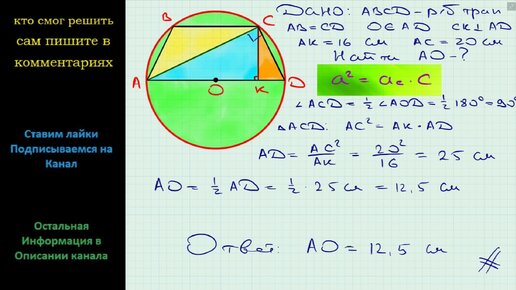 кто смог решить
сам пишите в
комментариях
Ставим лайки
Подписываемся на
Канал
Остальная
Информация в
Описании канала
B
C
A
O
K
D
Дано: ABCD – р/б трап
AB = CD O∈AD CK⊥AD
AK = 16 см AC = 20 см
Найти AO – ?
a² = a_c · c
∠ACD = ½ ∠AOD = ½ 180° = 90°
△ACD: AC² = AK · AD
AD = AC²/AK = 20²/16 = 25 см
AO = ½ AD = ½ · 25 см = 12,5 см
Ответ: AO = 12,5 см